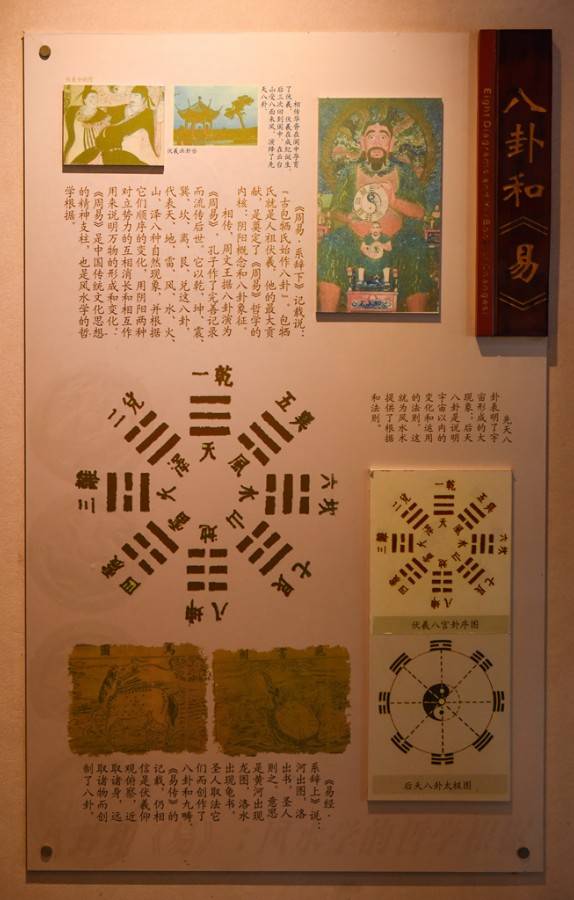 八卦和《易》
Eight Diagrams and Book of Changes
相传华胥在阆中孕育
了伏羲，伏羲在成纪诞生，
后三次回到阆中，在云台
山受八面来风，演绎了先
天八卦。
伏羲演卦台
《周易·系辞下》记载说：
“古包牺氏始作八卦”，包牺
氏就是人祖伏羲，他的最大贡
献，是奠定了《周易》哲学的
内核：阴阳概念和八卦象征。
相传，周文王据八卦演为
《周易》，孔子作了完善记录
而流传后世。它以乾、坤、震、
巽、坎、离、艮、兑这八卦，
代表天、地、雷、风、水、火、
山、泽八种自然现象，并根据
它们顺序的变化，用阴阳两种
对立势力的互相消长和相互作
用来说明万物的形成和变化。
《周易》是中国传统文化思想
的精神支柱，也是风水学的哲
学根据。
先天八
卦表明了宇
宙形成的大
现象；后天
八卦是说明
宇宙以内的
变化和运用
的法则。这
就为风水术
提供了根据
和法则。
一乾
二兑
三離
四震
五巽
六坎
七艮
八坤
天
澤
火
雷
風
水
山
地
一乾
二兑
三離
四震
五巽
六坎
七艮
八坤
天
澤
火
雷
風
水
山
地
伏羲八宫卦序图
后天八卦太极图
《易经·
系辞上》说：
河出图，洛
出书，圣人
则之。意思
是黄河出现
龙图，洛水
出现龟书，
圣人取法它
们而创作了
八卦和九畴。
《易传》的
记载，仍相
信是伏羲仰
观俯察，近
取诸身，远
取诸物而创
制了八卦。